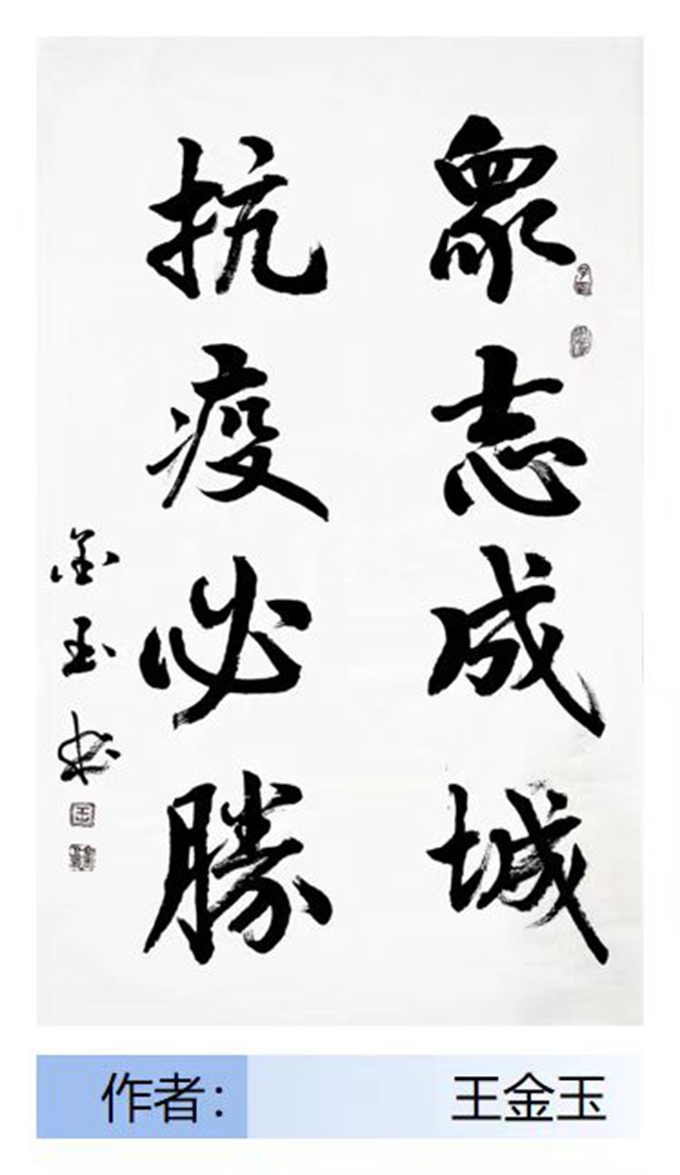 眾志成城
抗疫必勝
金玉书
作者：王金玉